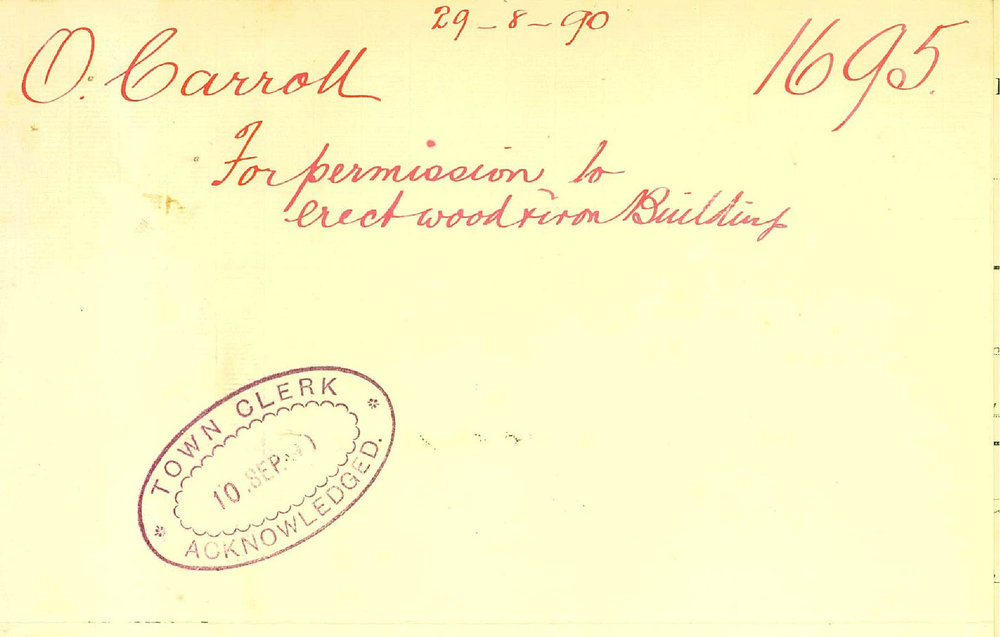 29-8-90
O. Carroll
1695.
For permission to
erect wood & iron Building
TOWN CLERK
10 SEP
ACKNOWLEDGED.